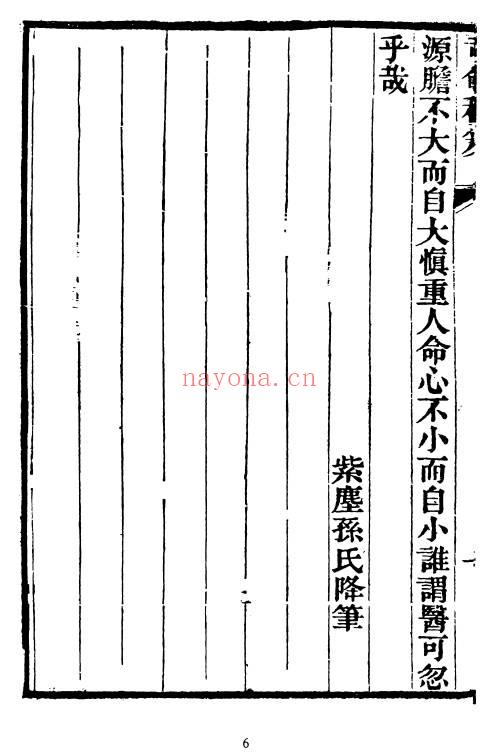 源膽不大而自大慎重人命心不小而自小誰謂醫可忽
乎哉
紫塵孫氏降筆
nayona.cn
6